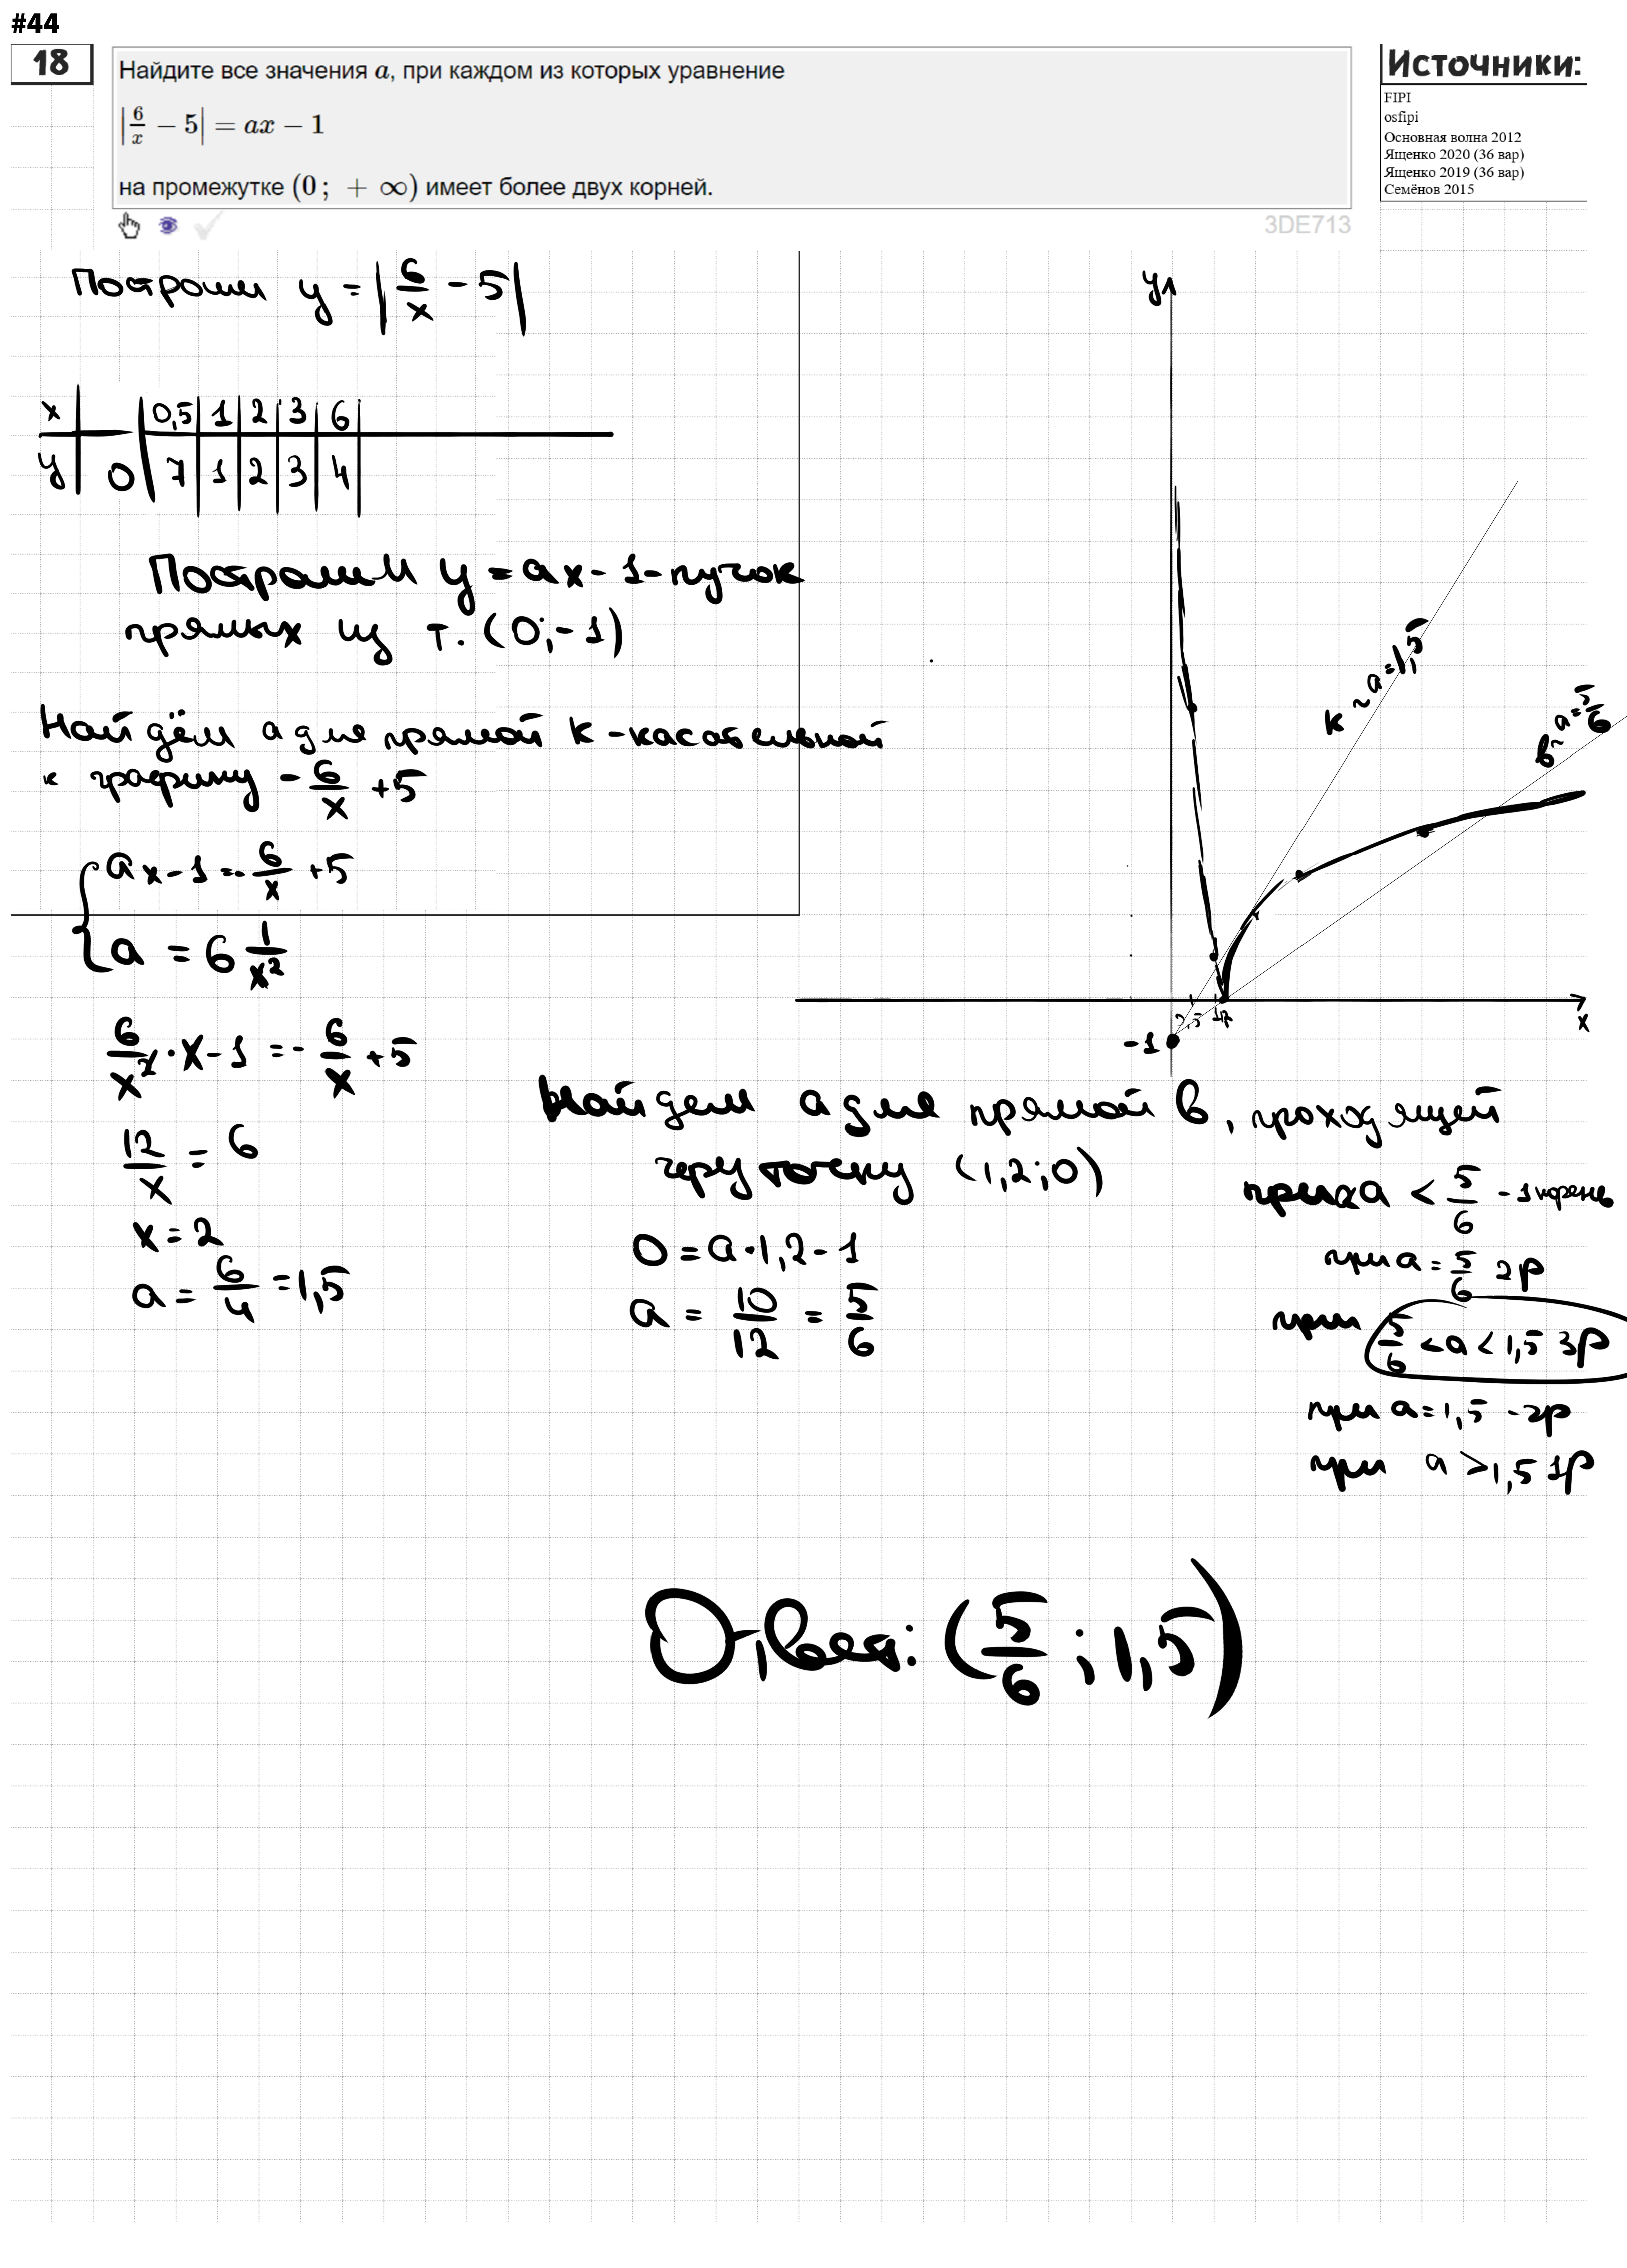 #44
18
Найдите все значения a, при каждом из которых уравнение
|6/x − 5| = ax − 1
на промежутке (0; + ∞) имеет более двух корней.
3DE713
Источники:
FIPI
osfipi
Основная волна 2012
Ященко 2020 (36 вар)
Ященко 2019 (36 вар)
Семёнов 2015
Построим y = |6/x - 5|
x 0,5 1 2 3 6
y 0 7 1 2 3 4
Построим y = ax - 1 - пучок
прямых из т. (0; -1)
Найдём a для прямой k - касательной
к графику - 6/x + 5
ax - 1 = - 6/x + 5
a = 6 1/x²
6/x² · x - 1 = - 6/x + 5
12/x = 6
x = 2
a = 6/4 = 1,5
y
k ~ a = 1,5
b ~ a = 5/6
x
-1
Найдем a для прямой b, проходящей
через точку (1,2; 0)
0 = a · 1,2 - 1
a = 10/12 = 5/6
при a < 5/6 - 1 корень
при a = 5/6 2р
при 5/6 < a < 1,5 3р
при a = 1,5 - 2р
при a > 1,5 1р
Ответ: (5/6 ; 1,5)